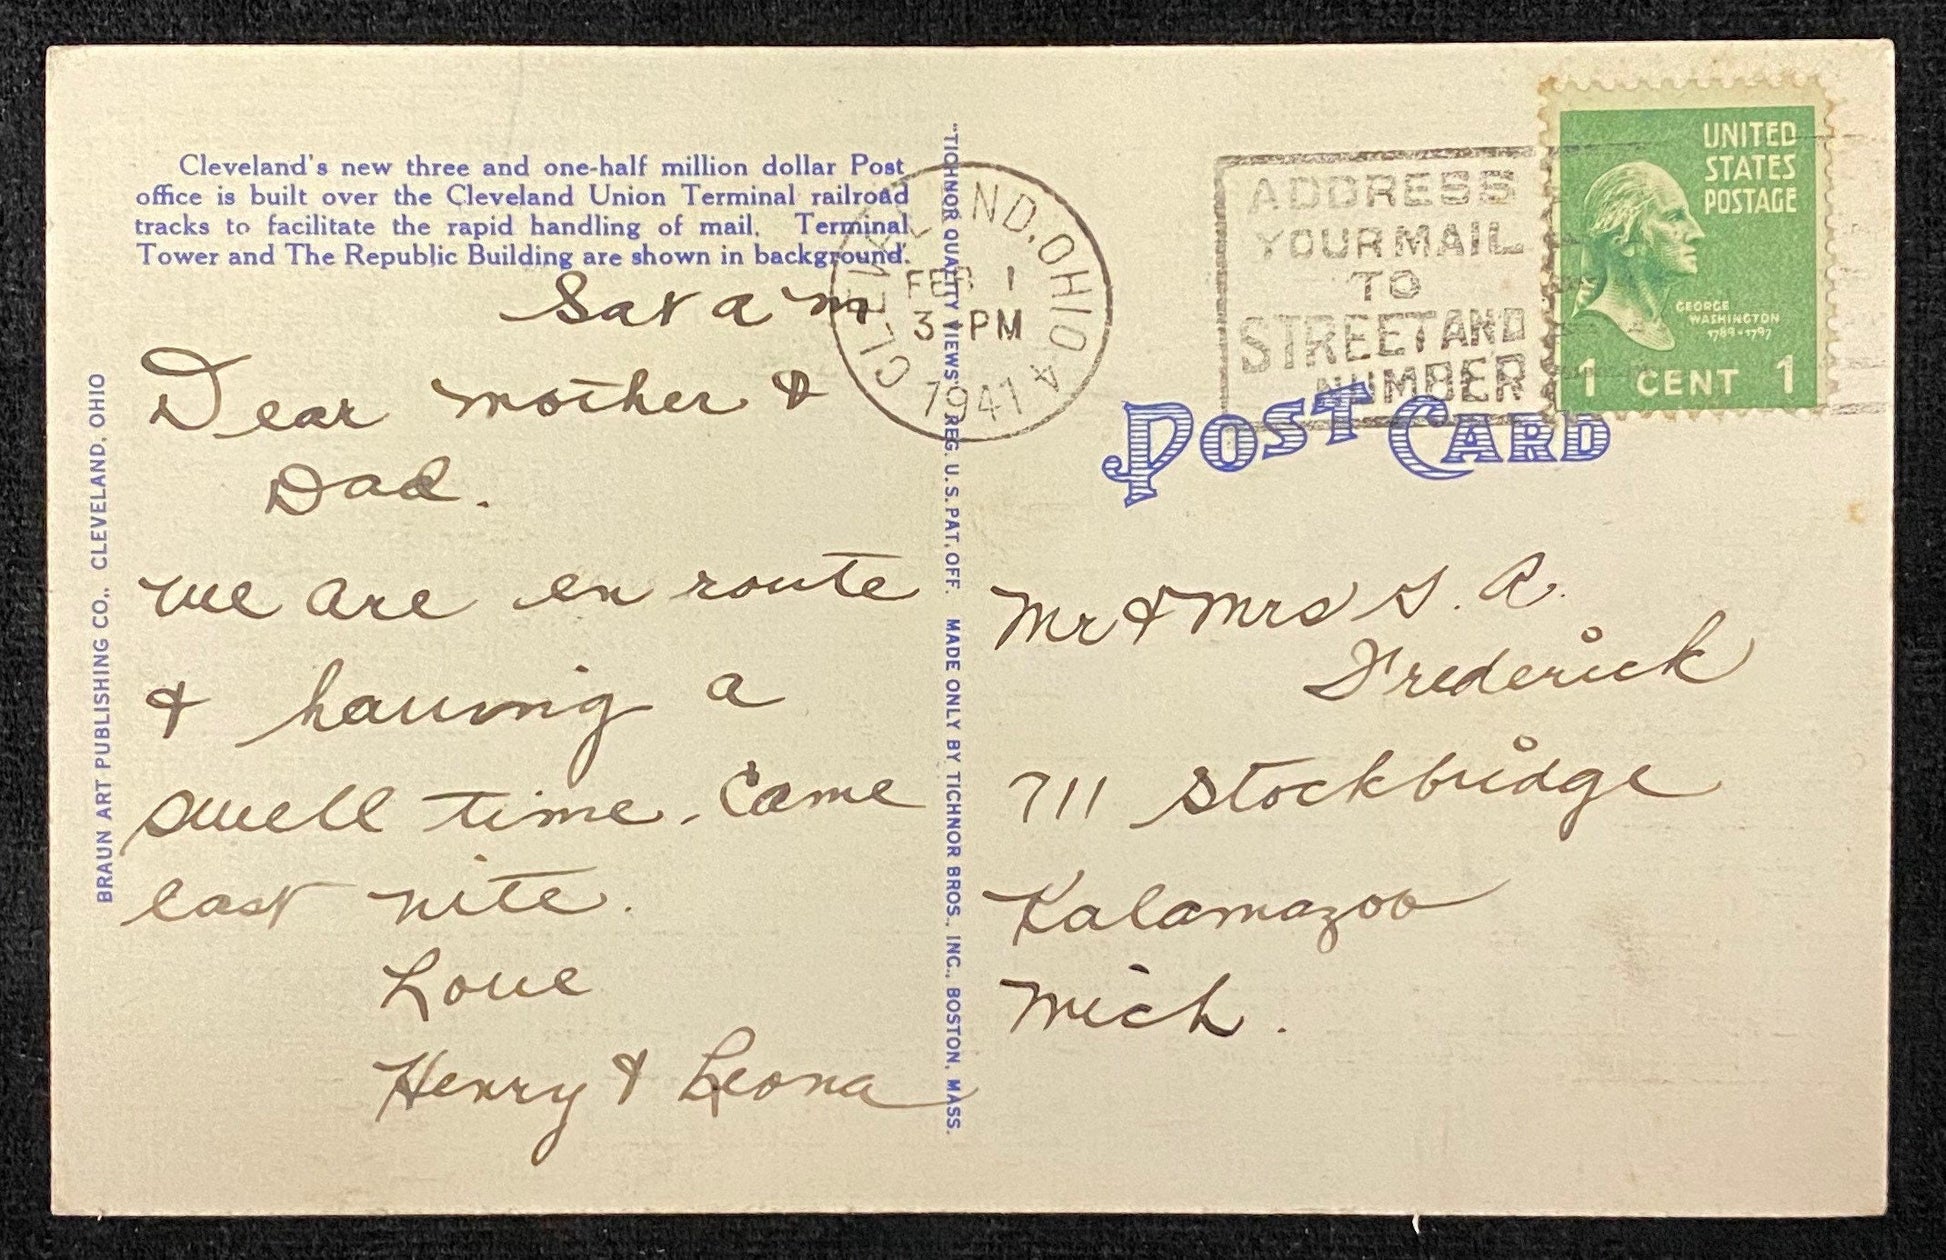 Cleveland's new three and one-half million dollar Post
office is built over the Cleveland Union Terminal railroad
tracks to facilitate the rapid handling of mail. Terminal
Tower and The Republic Building are shown in background.
Sat a m
Dear Mother &
Dad.
We are en route
& having a
swell time. Came
last nite.
Love
Henry & Leona
BRAUN ART PUBLISHING CO., CLEVELAND, OHIO
"TICHNOR QUALITY VIEWS" REG. U. S. PAT. OFF. MADE ONLY BY TICHNOR BROS., INC., BOSTON, MASS.
CLEVELAND, OHIO 4
FEB 1
3 PM
1941
ADDRESS
YOUR MAIL
TO
STREET AND
NUMBER
UNITED
STATES
POSTAGE
GEORGE
WASHINGTON
1789-1797
1 CENT 1
POST CARD
Mr & Mrs S. A.
Frederick
711 Stockbridge
Kalamazoo
Mich.